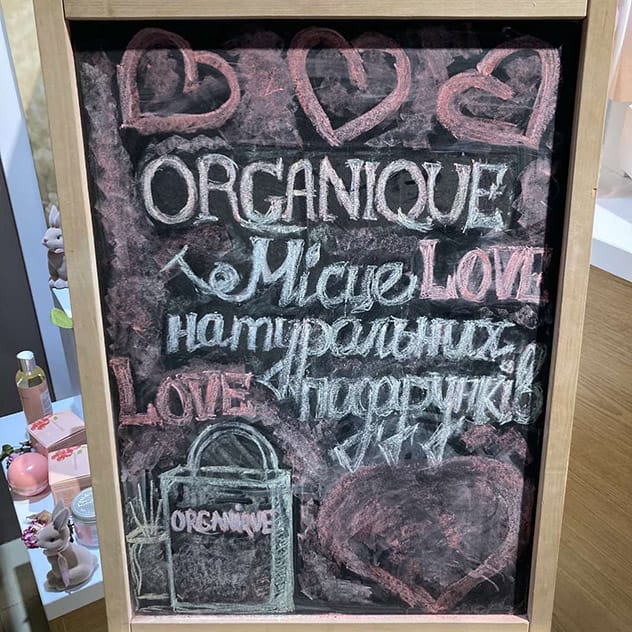 ORGANIQUE
то Місце LOVE
натуральних
LOVE подарунків
ORGANIQUE